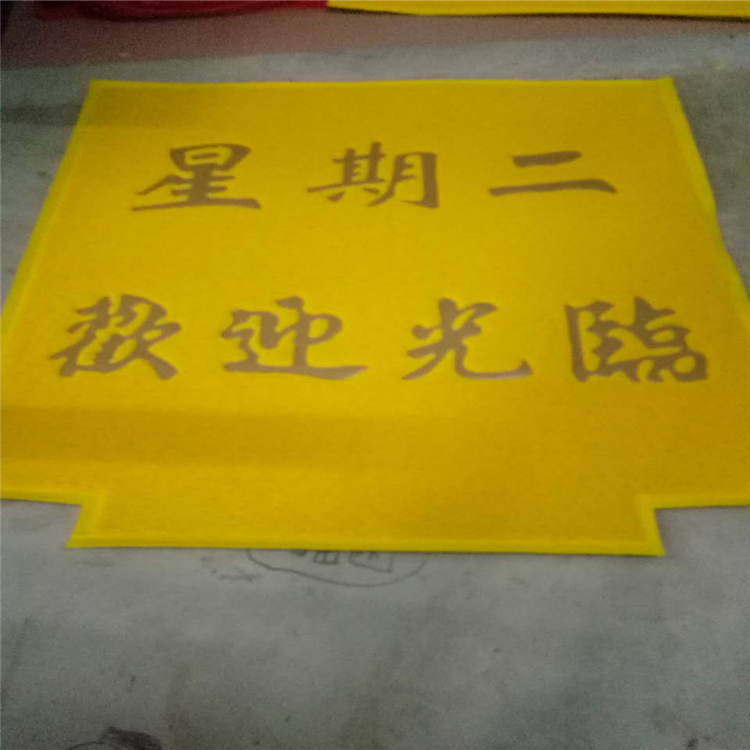 星期二
歡迎光臨